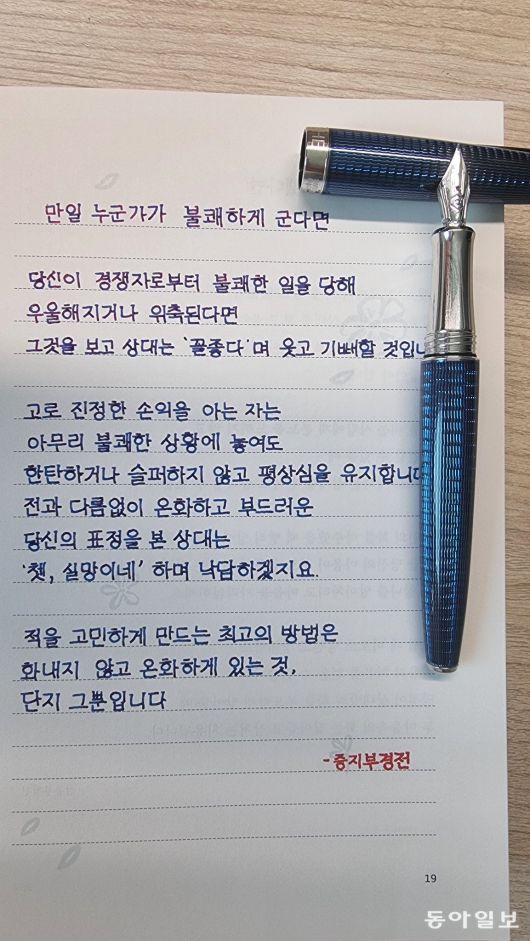 만일 누군가가 불쾌하게 군다면
당신이 경쟁자로부터 불쾌한 일을 당해
우울해지거나 위축된다면
그것을 보고 상대는 '꼴좋다'며 웃고 기뻐할 것입니
고로 진정한 손익을 아는 자는
아무리 불쾌한 상황에 놓여도
한탄하거나 슬퍼하지 않고 평상심을 유지합니다
전과 다름없이 온화하고 부드러운
당신의 표정을 본 상대는
'쳇, 실망이네' 하며 낙담하겠지요.
적을 고민하게 만드는 최고의 방법은
화내지 않고 온화하게 있는 것,
단지 그뿐입니다
-증지부경전
19
동아일보